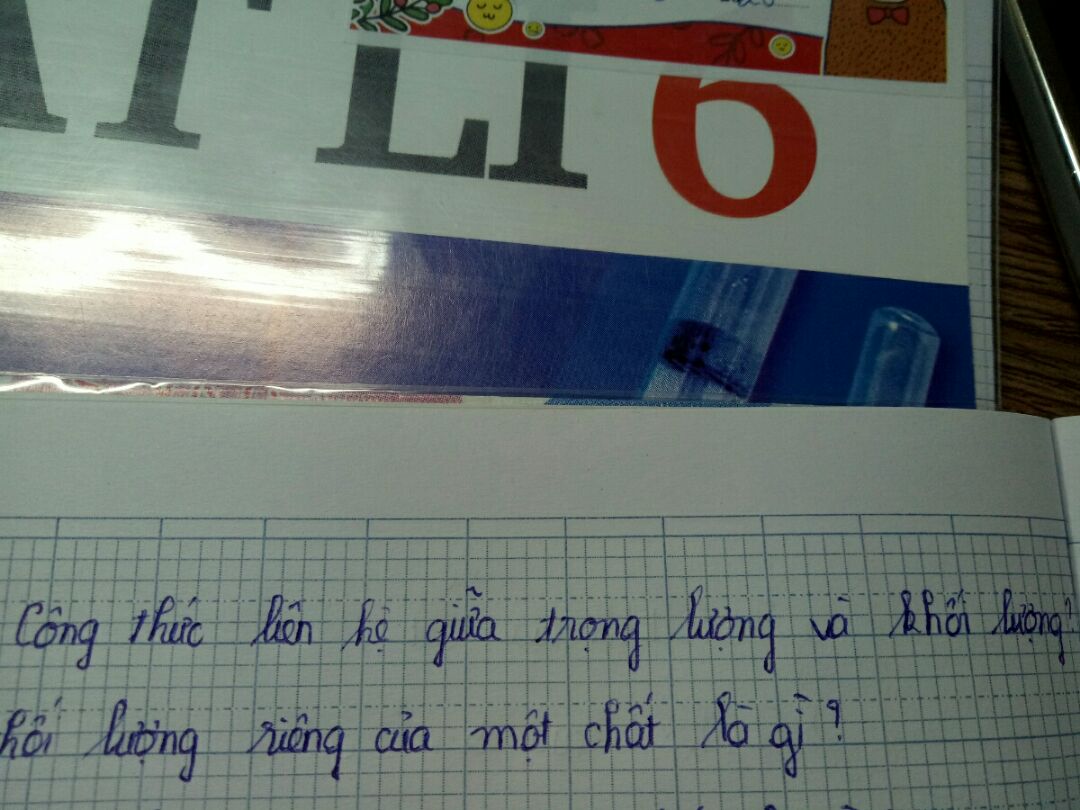 LÍ 6
Công thức liên hệ giữa trọng lượng và khối lượng?
hối lượng riêng của một chất là gì?